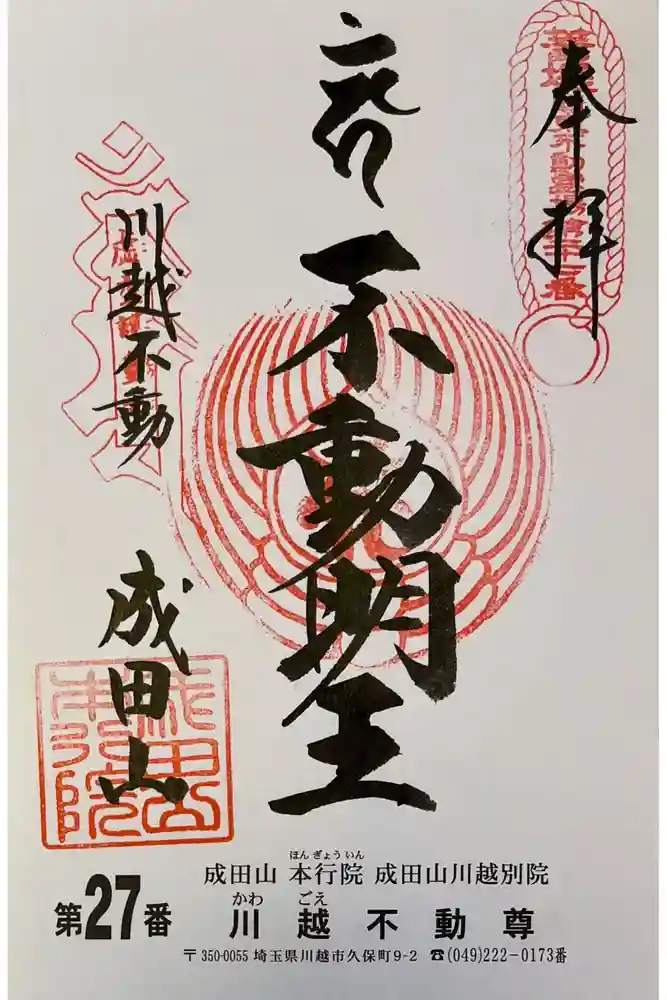 奉拝
不動明王
川越不動
成田山
成田山
本行院
ほんぎょういん
成田山 本行院 成田山川越別院
かわ ごえ
第27番 川越不動尊
〒350-0055 埼玉県川越市久保町9-2 ☎(049)222-0173番